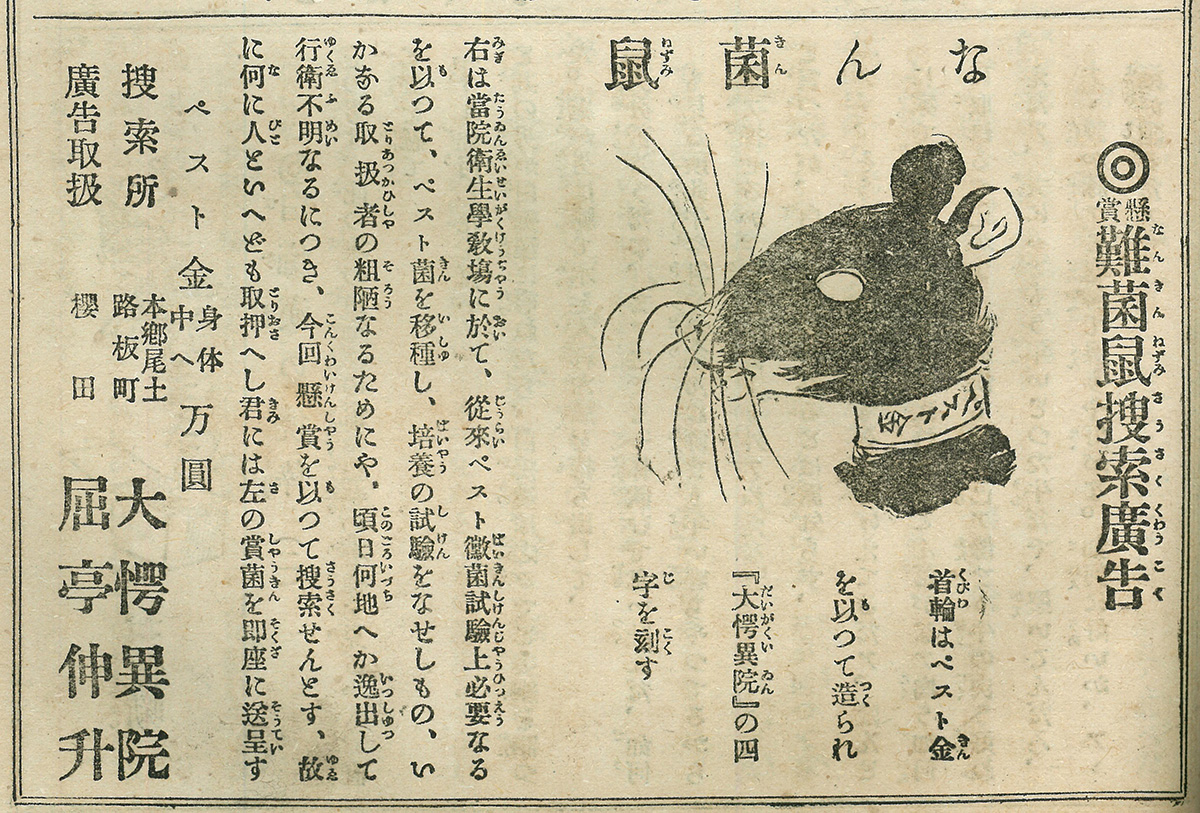 ◎懸賞難菌鼠搜索廣告
なん菌鼠
ペスト金
首輪はペスト金
を以つて造られ
『大愕異院』の四
字を刻す
右は當院衛生學敎塲に於て、從來ペスト黴菌試驗上必要なる
を以つて、ペスト菌を移種し、培養の試驗をなせしもの、い
かなる取扱者の粗陋なるためにや、頃日何地へか逸出して
行衛不明なるにつき、今回懸賞を以つて搜索せんとす、故
に何に人といへども取押へし君には左の賞菌を即座に送呈す
ペスト金身体中へ万圓
搜索所 本鄉尾土路板町 大愕異院
廣告取扱 櫻田 屈亭仲升